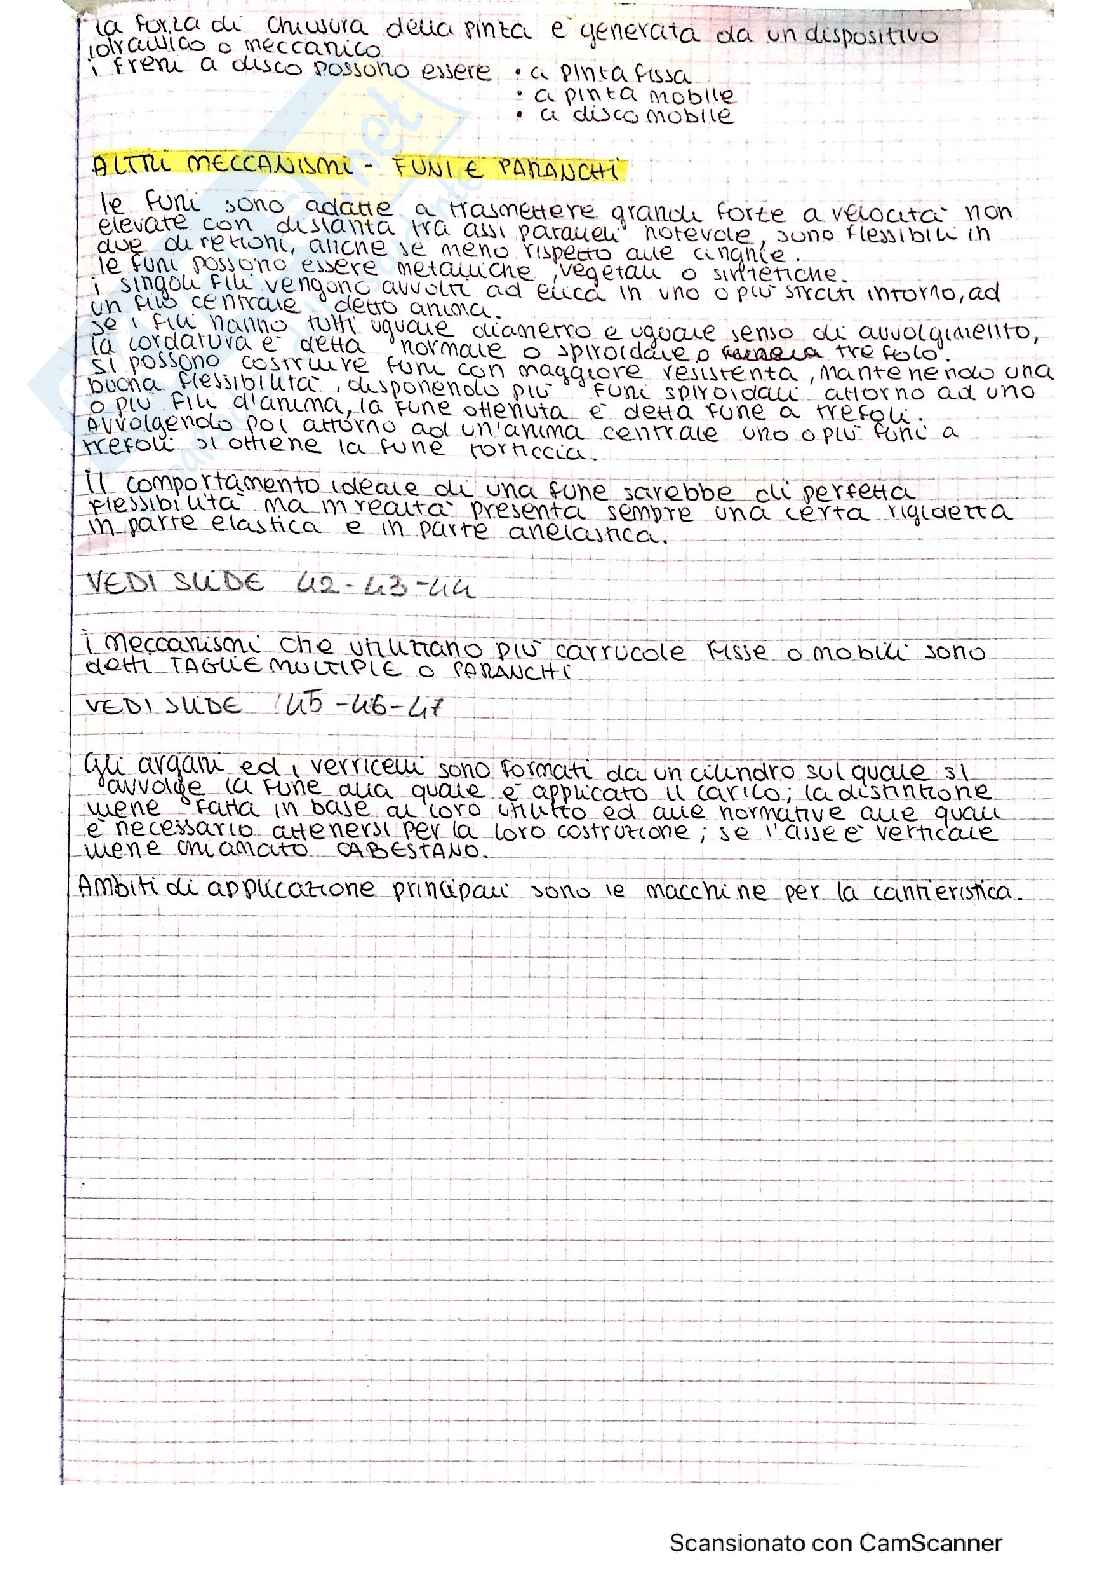 la forza di chiusura della pinta è generata da un dispositivo
idraulico o meccanico
i freni a disco possono essere • a pinta fissa
• a pinta mobile
• a disco mobile
ALTRI MECCANISMI - FUNI E PARANCHI
le funi sono adatte a trasmettere grandi forze a velocità non
elevate con distanza tra assi paralleli notevole, sono flessibili in
due direzioni, anche se meno rispetto alle cinghie.
le funi possono essere metalliche, vegetali o sintetiche.
i singoli fili vengono avvolti ad elica in uno o più strati intorno, ad
un filo centrale detto anima.
se i fili hanno tutti uguale diametro e uguale senso di avvolgimento,
la cordatura è detta normale o spiroidale o trefolo.
si possono costruire funi con maggiore resistenza, mantenendo una
buona flessibilità, disponendo più funi spiroidali attorno ad uno
o più fili d'anima, la fune ottenuta è detta fune a trefoli.
Avvolgendo poi attorno ad un'anima centrale uno o più funi a
trefoli si ottiene la fune torticcia.
Il comportamento ideale di una fune sarebbe di perfetta
flessibilità ma in realtà presenta sempre una certa rigidezza
in parte elastica e in parte anelastica.
VEDI SLIDE 42-43-44
i meccanismi che utilizzano più carrucole fisse o mobili sono
detti TAGLIE MULTIPLE o PARANCHI
VEDI SLIDE 45-46-47
Gli argani ed i verricelli sono formati da un cilindro sul quale si
avvolge la fune alla quale è applicato il carico; la distinzione
viene fatta in base al loro utilizzo ed alle normative alle quali
è necessario attenersi per la loro costruzione; se l'asse è verticale
viene chiamato CABESTANO.
Ambiti di applicazione principali sono le macchine per la cantieristica.
Scansionato con CamScanner